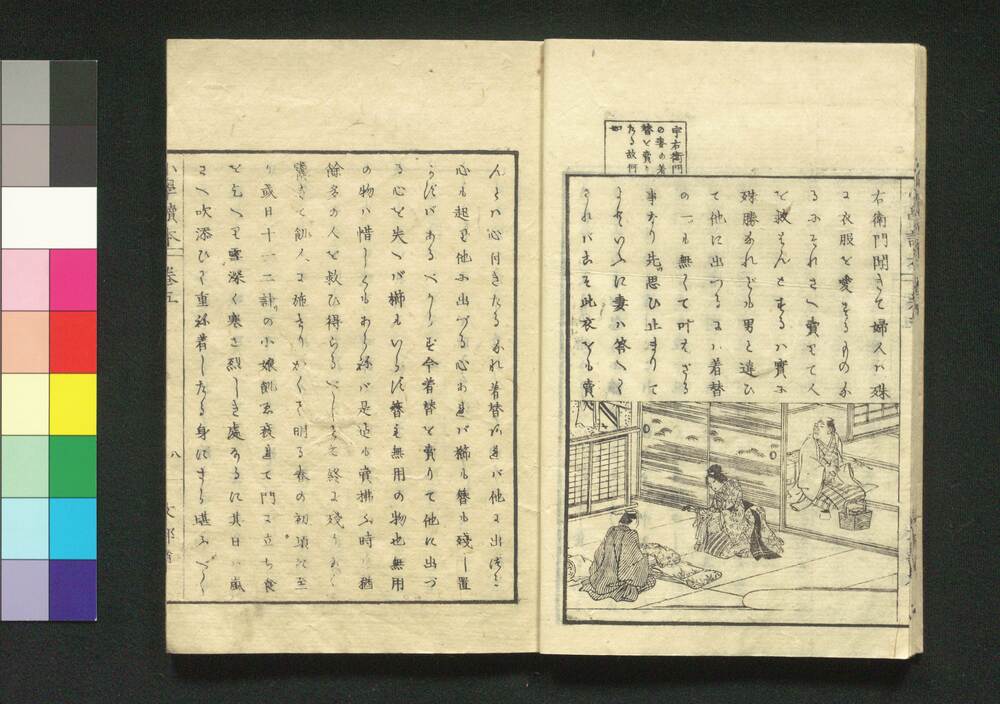 宇右衛門
の妻の着
替を賣り
たる故何
右衛門聞きて婦人ハ殊
に衣服を愛するものな
るにそれさへ賣りて人
を救はんとするハ實に
殊勝なれども男と違ひ
て他に出づるにハ着替
の一も無くて叶はざる
事なり先思ひ止まりて
といふに妻ハ答へて
されバこそ此衣をも賣
んとハ心付きたるなれ着替あれバ他に出づる
心も起り他に出づる心あれバ櫛も簪も殘し置
かずバあるべからず今着替を賣りて他に出づ
る心を失へバ櫛もいらず簪も無用の物也無用
の物ハ惜しくもあらねバ是迄も賣拂ふ時ハ猶
餘多の人を救ひ得らるべしとて終に殘りなく
賣きて飢人に施せりかくて明る春の初頃に至
り或日十一二計の小娘飢ゑ疲れて門に立ち食
を乞へり雪深く寒さ烈しき處なるに其日ハ嵐
さへ吹添ひて重ね着したる身にすら堪ふべく
小學讀本 巻五
八